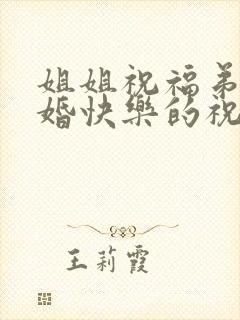 姐姐祝福弟
婚快樂的祝
王莉霞